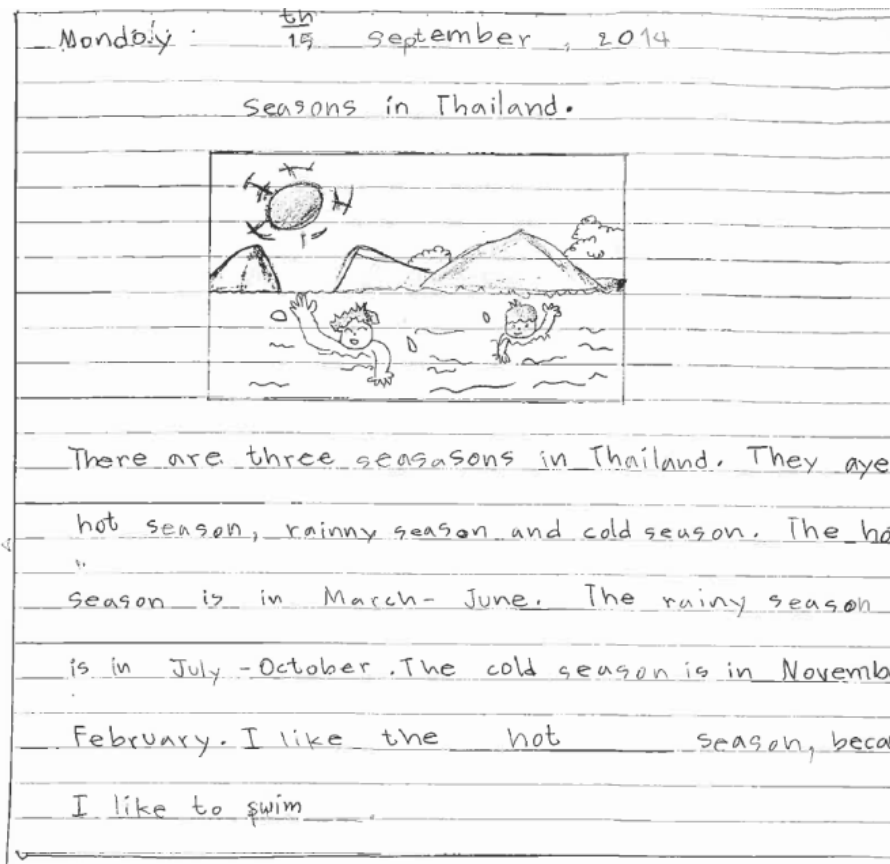 Monday : 15th september , 2014
seasons in Thailand.
There are three seasasons in Thailand. They aye
hot season, rainny season and cold season. The ho
season is in March- June. The rainy season
is in July -October. The cold season is in Novemb
February. I like the hot season, beca
I like to swim .